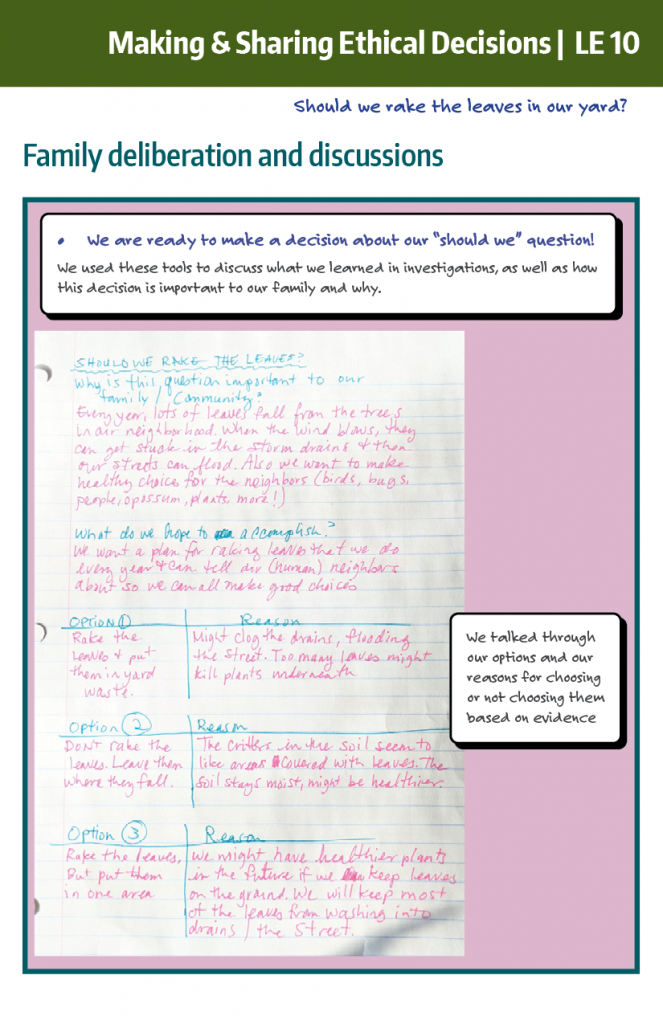 Making & Sharing Ethical Decisions | LE 10
Should we rake the leaves in our yard?
Family deliberation and discussions
• We are ready to make a decision about our "should we" question!
We used these tools to discuss what we learned in investigations, as well as how
this decision is important to our family and why.
SHOULD WE RAKE THE LEAVES?
Why is this question important to our
family / Community?
Every year, lots of leaves fall from the trees
in our neighborhood. When the wind blows, they
can get stuck in the storm drains & then
our streets can flood. Also we want to make
healthy choices for the neighbors (birds, bugs,
people, opossum, plants, more!)
What do we hope to accomplish?
We want a plan for raking leaves that we do
every year & can tell our (human) neighbors
about so we can all make good choices
Option 1 Reason
Rake the Might clog the drains, flooding
leaves & put the street. Too many leaves might
them in yard kill plants underneath
waste.
We talked through
our options and our
reasons for choosing
or not choosing them
based on evidence
Option 2 Reason
Don't rake the The critters in the soil seem to
leaves. Leave them like areas covered with leaves. The
where they fall. soil stays moist, might be healthier.
Option 3 Reason
Rake the leaves, We might have healthier plants
But put them in the future if we keep leaves
in one area on the ground. We will keep most
of the leaves from washing into
drains / the street.